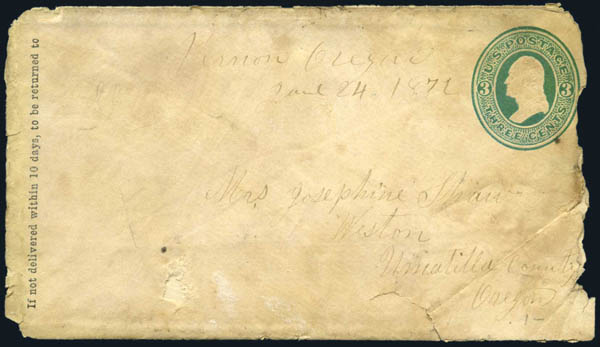 If not delivered within 10 days, to be returned to
Oregon
June 24. 1872
U.S. POSTAGE
3 3
THREE CENTS
Mrs Josephine Shaw
Weston
Umatilla County
Oregon